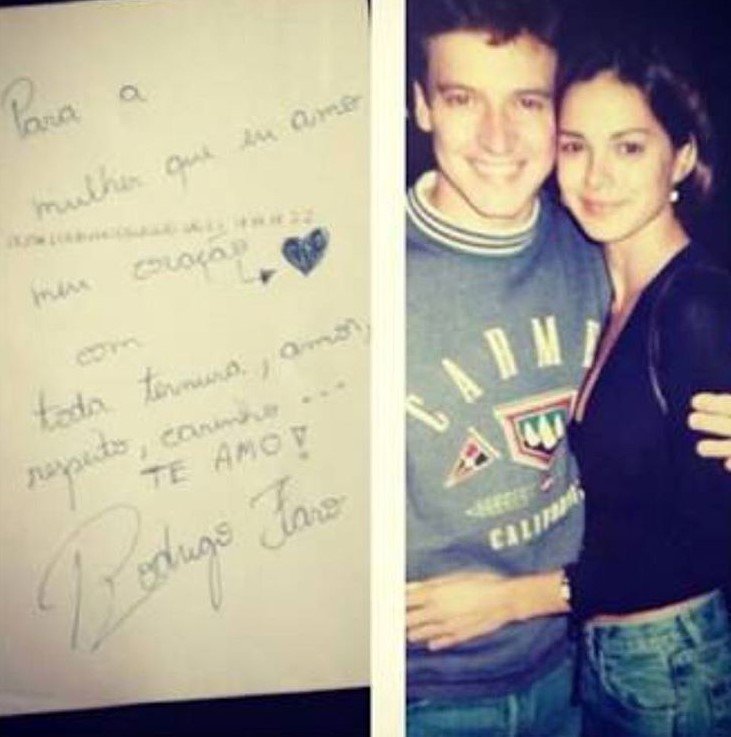 Para a
mulher que eu amo
meu coração
com
toda ternura, amor,
respeito, carinho ...
TE AMO!
Rodrigo Faro
CARME
CALIFOR